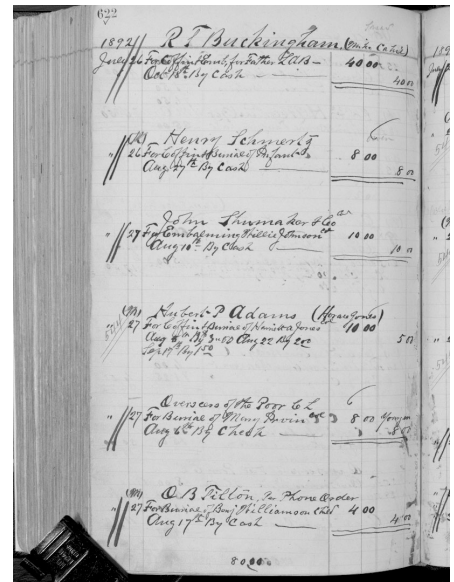 622
1892 R T Buckingham (Mike Cahil)
July 26 For Coffin & Emb. for Father 40 00
Oct 18th By Cash 40 00
(Pd) Henry Schmertz
26 For Coffin & Burial of Infant 8 00
Aug 27th By Cash 8 00
John Shumaker & Co
" 27 For Embalming Willie Johnson 10 00
Aug 10th By Cash 10 00
(Pd) Hubert P Adams (Horace Jones)
" 27 For Coffin & Burial of Harriet A Jones 10 00
Aug 8th By 3 00 Aug 22 By 2 00 5 00
Sep 17th By 1 50
Overseers of the Poor C L
" 27 For Burial of Mary Irvin col 8 00
Aug 6th By Check 8 00
(Pd) O B Tilton, Per Phone Order
" 27 For Burial of Benj Williamson Chd 4 00
Aug 17th By Cash 4 00
80 00